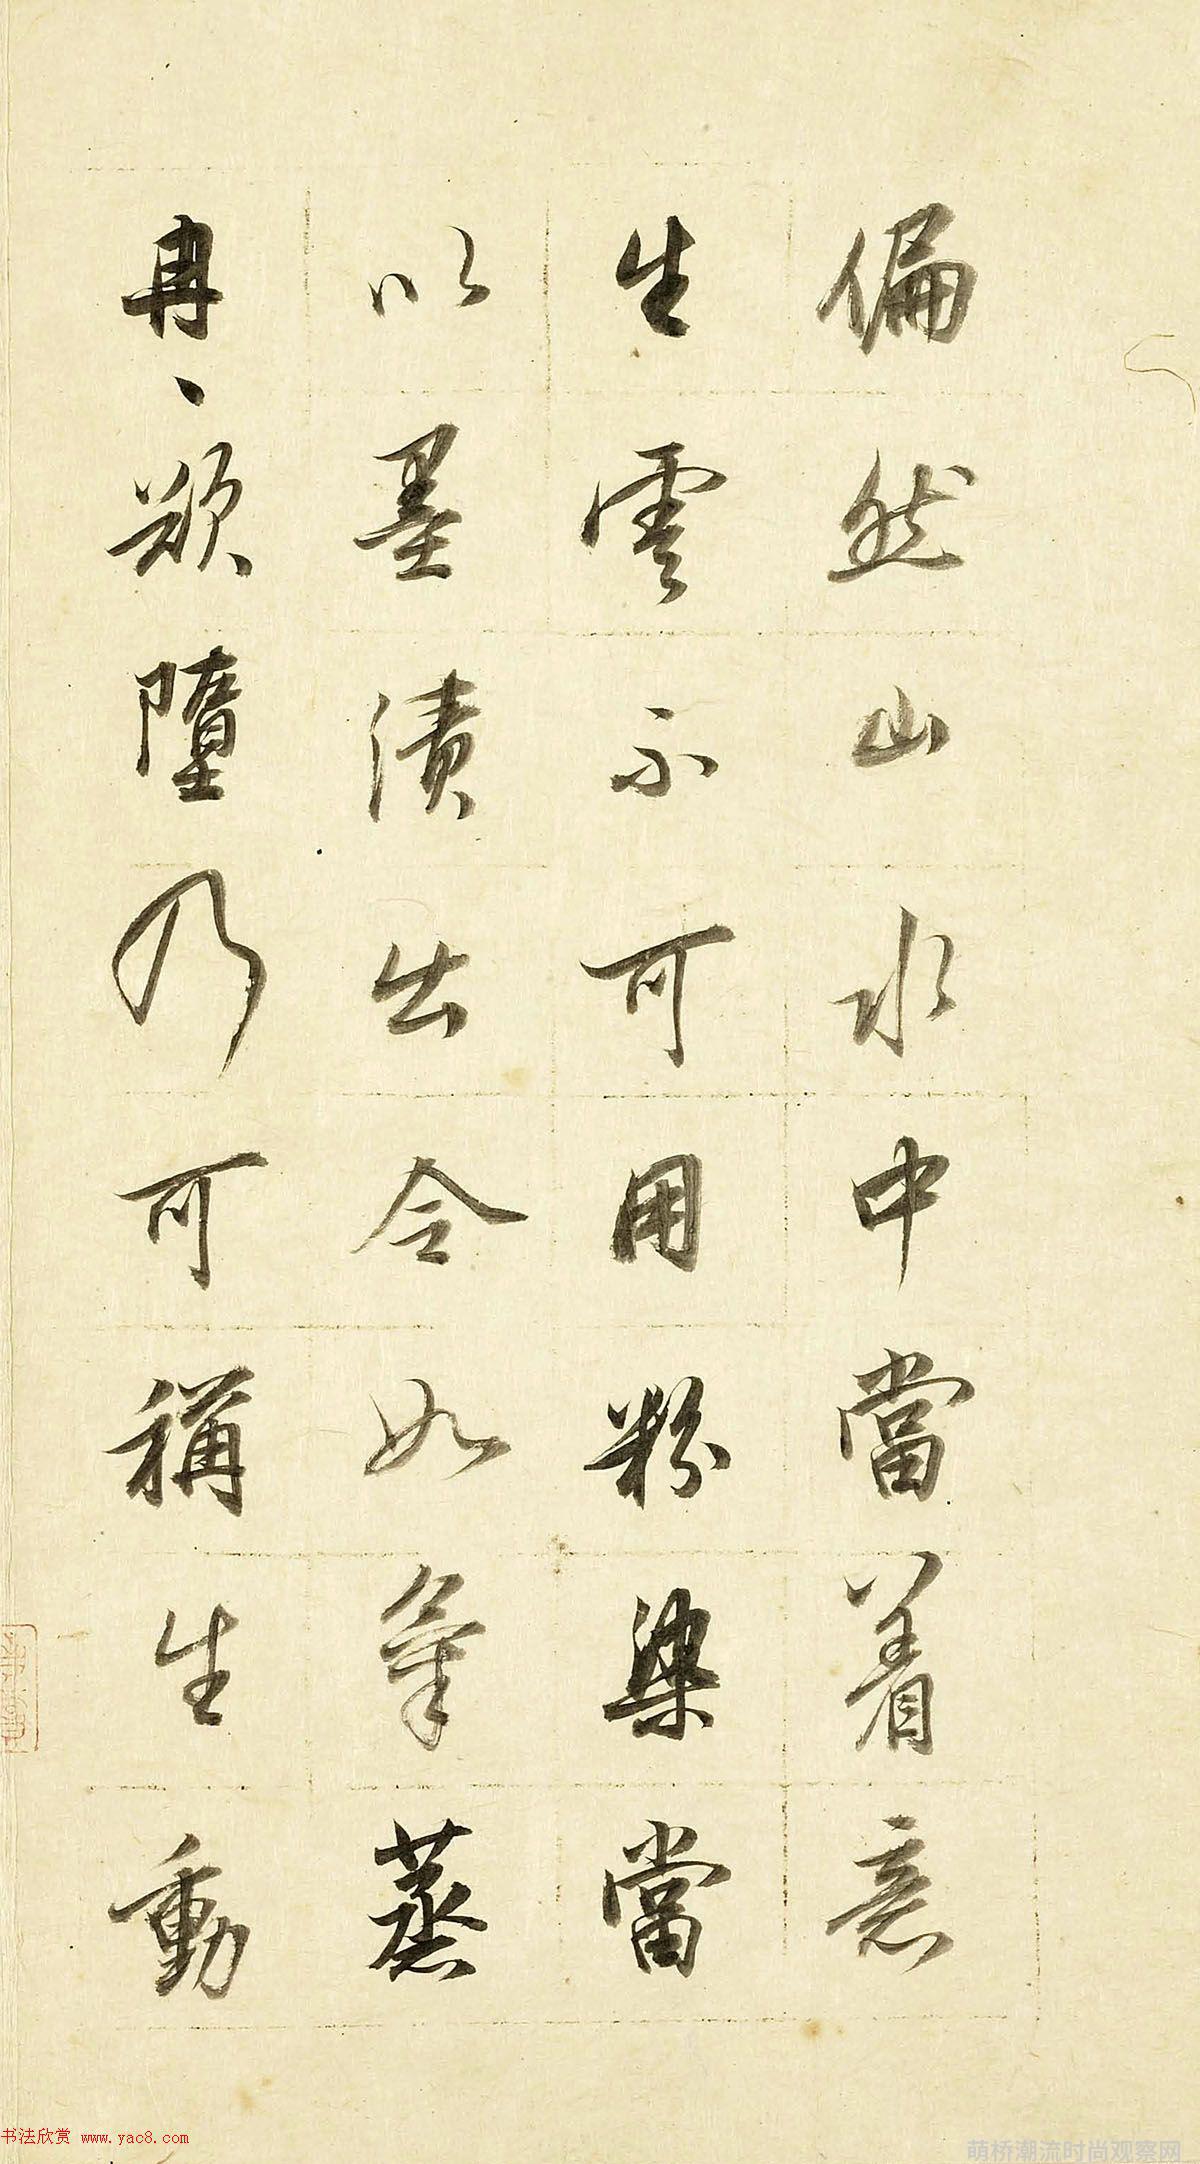 偏然山水中當着意
生雲不可用粉染當
以墨漬出令如氣蒸
冉〻欲墮乃可稱生動
书法欣赏 www.yac8.com
萌桥潮流时尚观察网